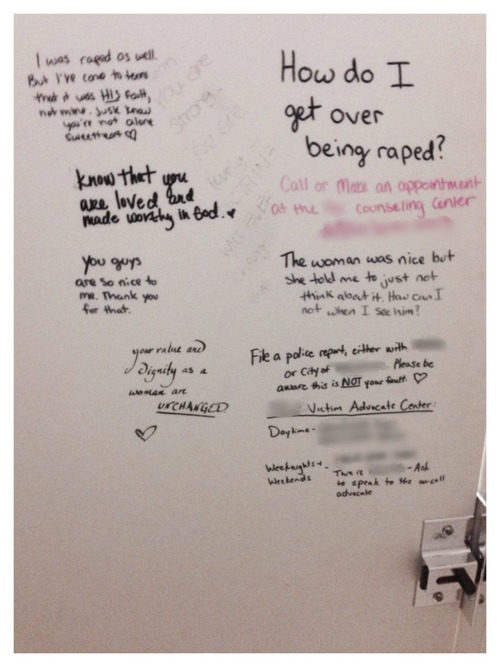 I was raped as well.
But I've come to terms
that it was HIS fault,
not mine. Just know
you're not alone
sweetheart ♡
Know that you
are loved and
made worthy in God. ♥
You guys
are so nice to
me. Thank you
for that.
your value and
dignity as a
woman are
UNCHANGED
♡
you are
strong
How do I
get over
being raped?
Call or Make an appointment
at the counseling center
The woman was nice but
she told me to just not
think about it. How can I
not when I see him?
File a police report, either with
or City of Please be
aware this is NOT your fault. ♡
Victim Advocate Center:
Daytime-
Weeknights+
Weekends -
This is -Ask
to speak to the on-call
advocate